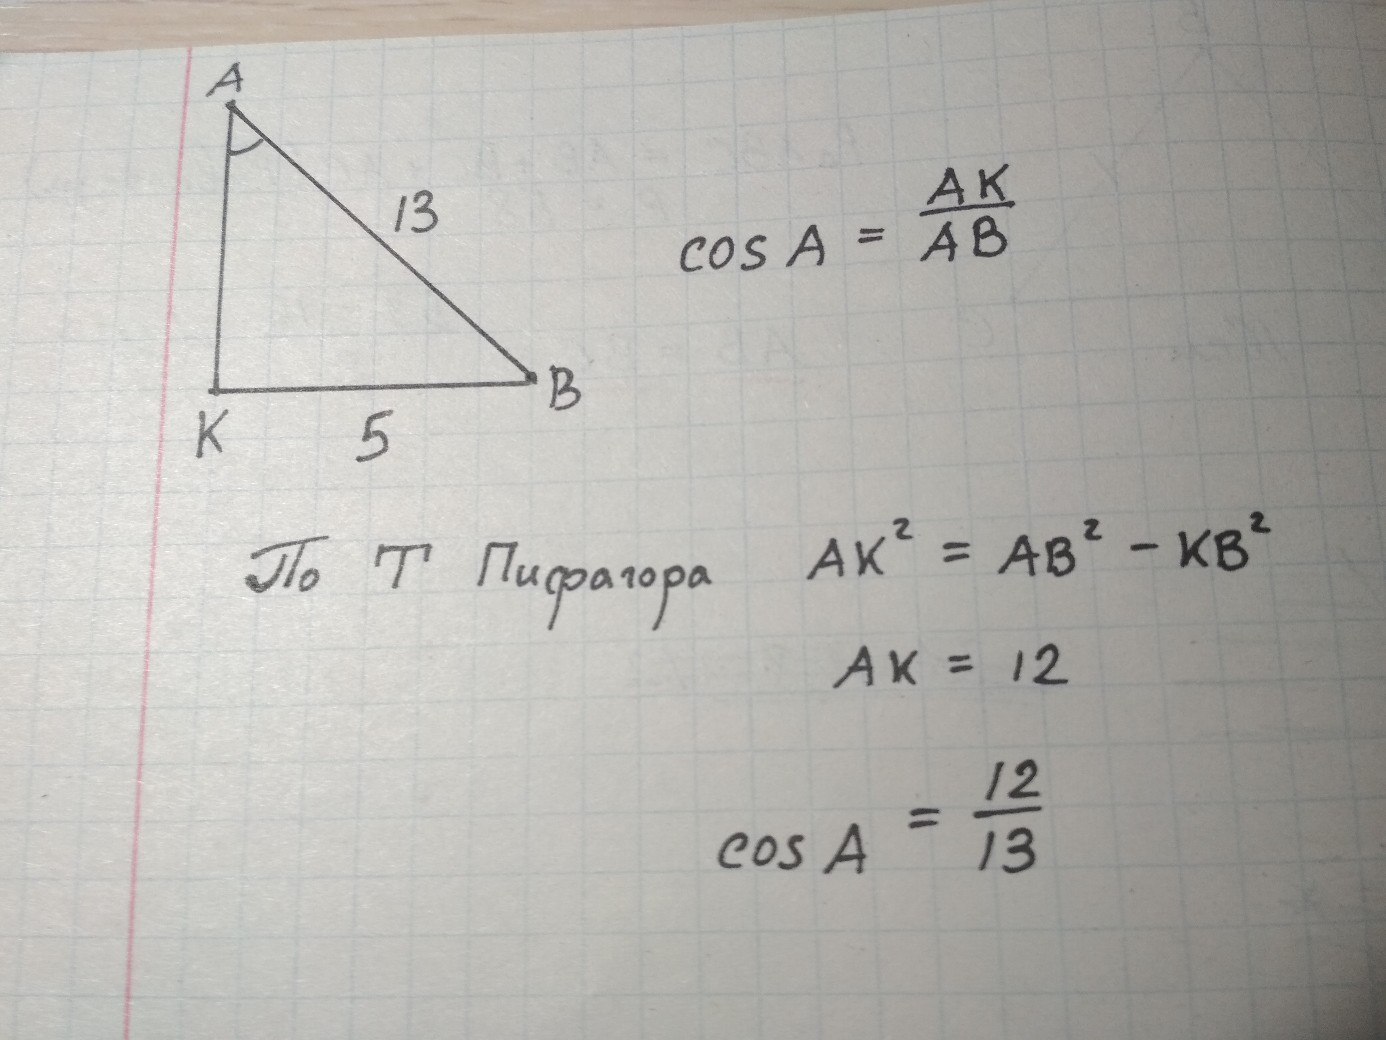 A
13
cos A = AK/AB
K
5
B
По Т Пифагора AK² = AB² - KB²
AK = 12
cos A = 12/13